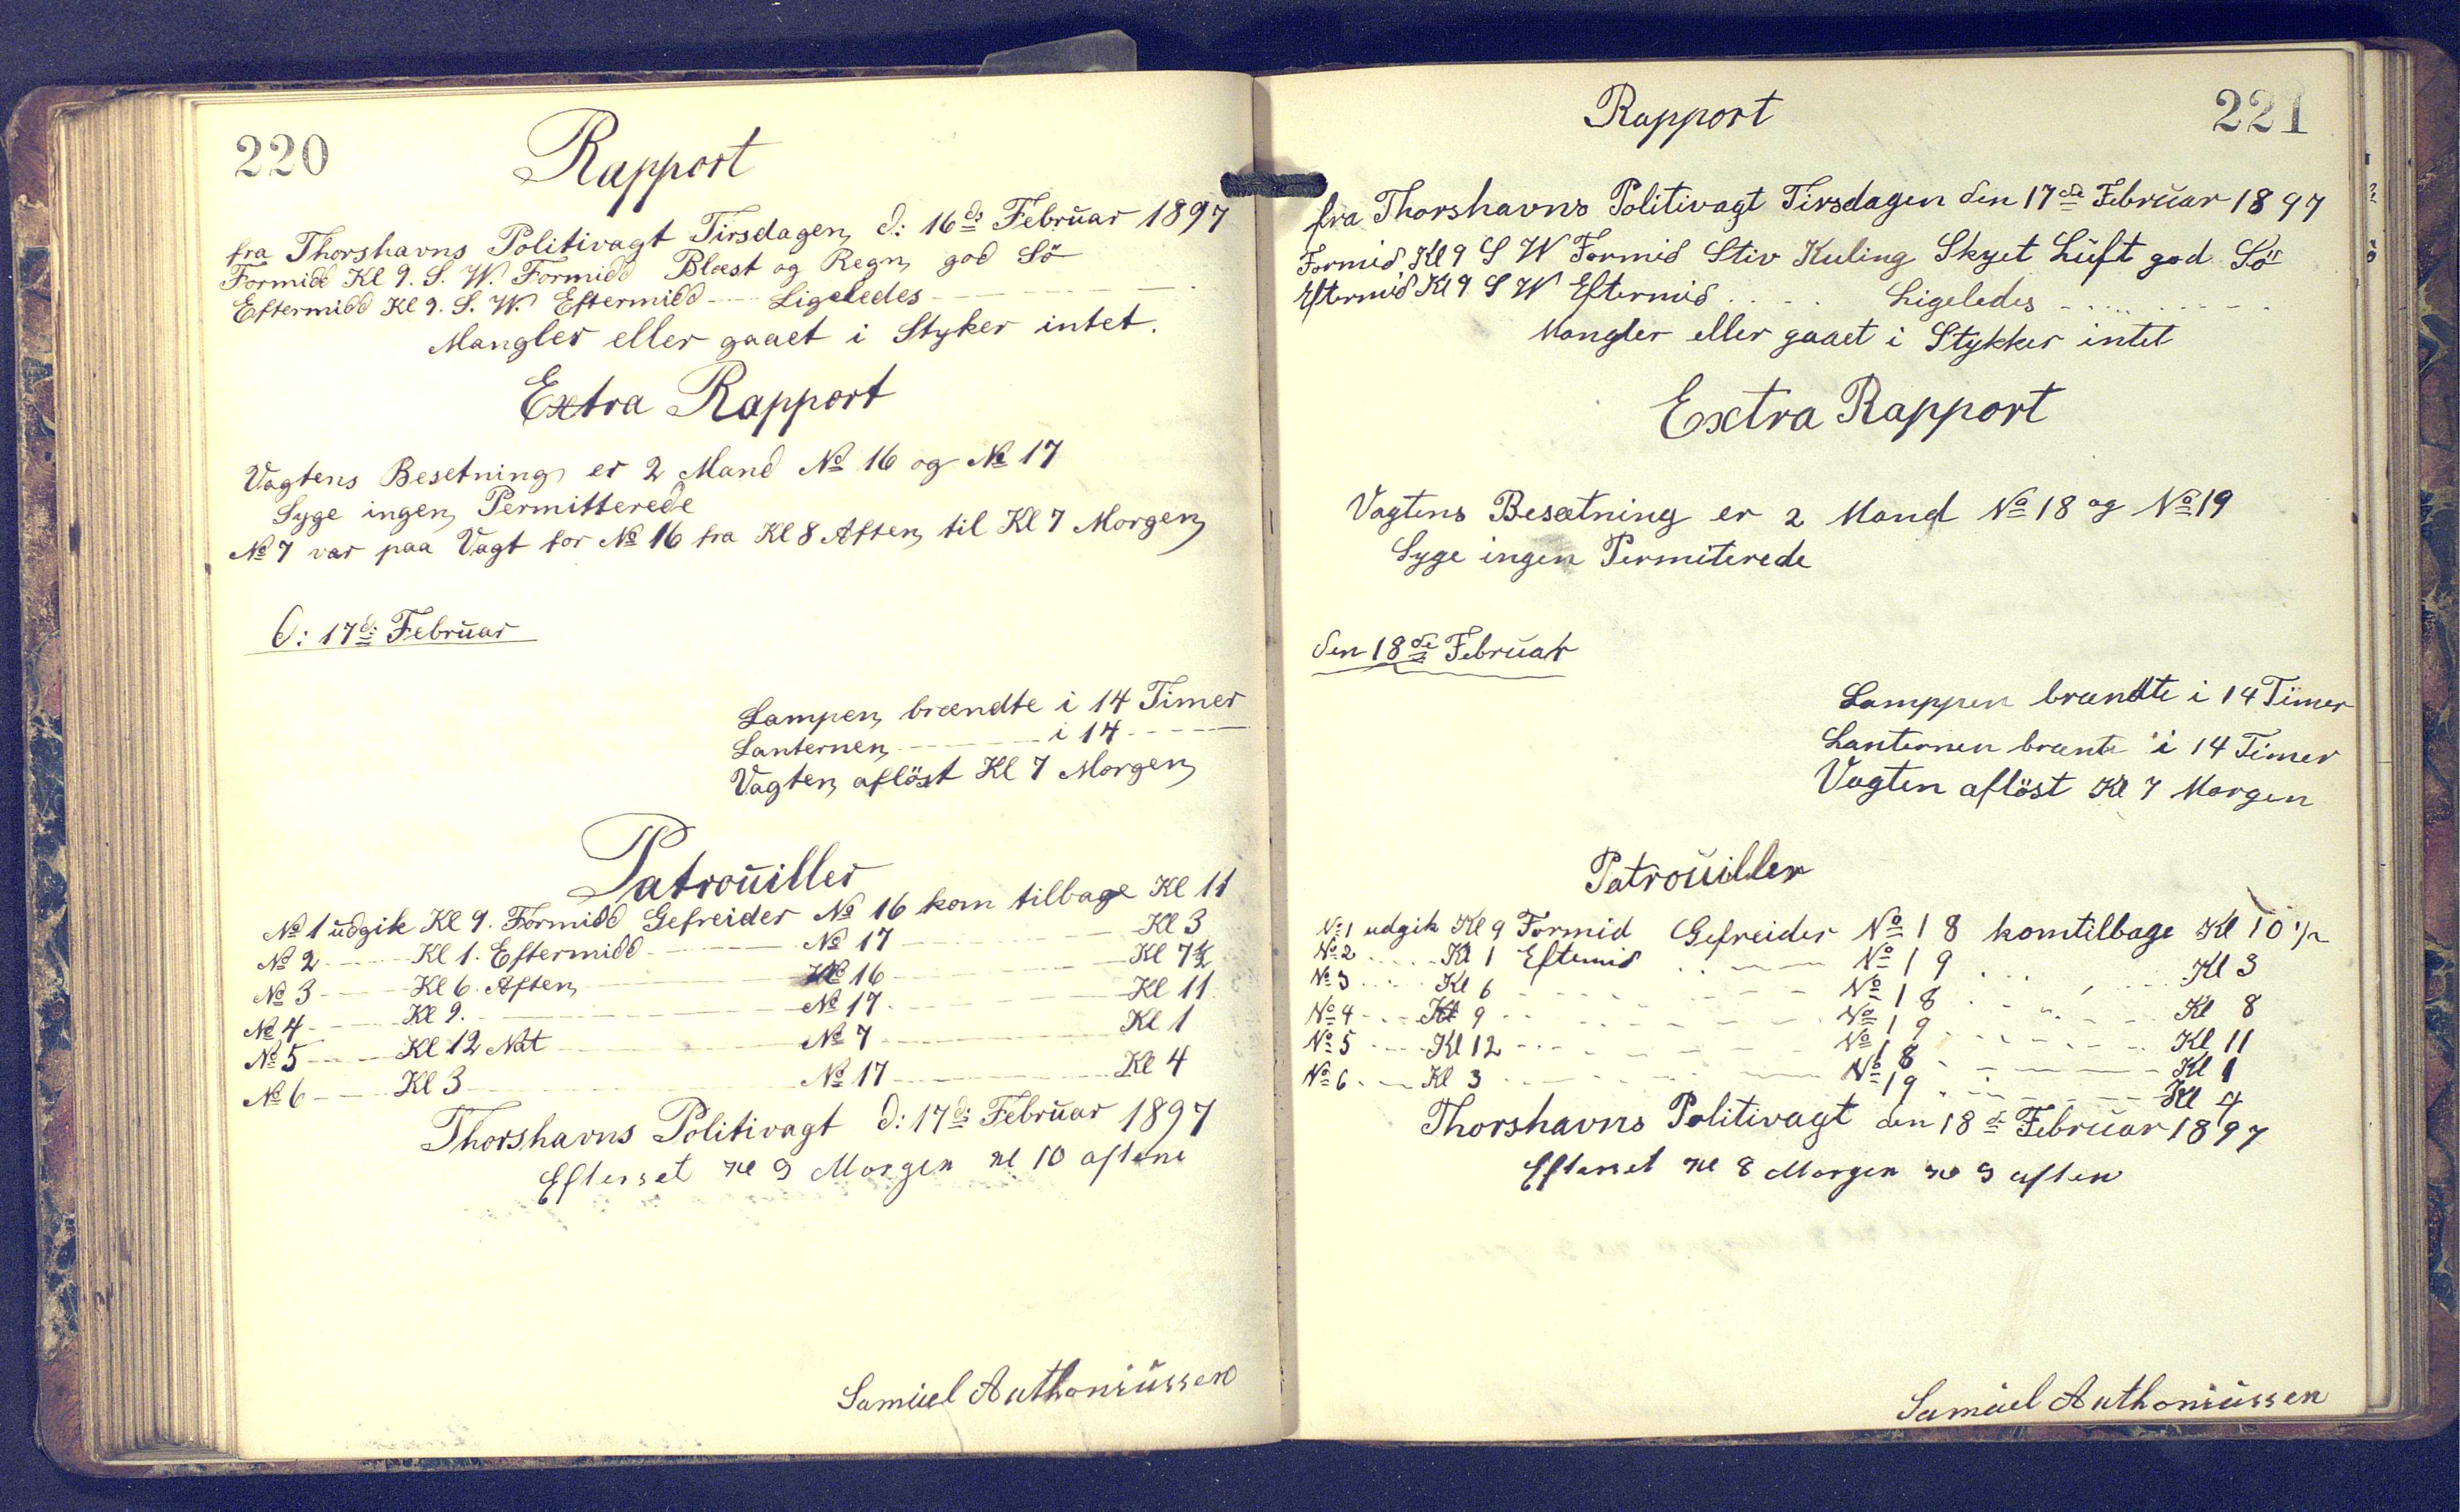 220
Rapport
fra Thorshavns Politivagt Tirsdagen, d: 16d: Februar 1897
Formidd Kl 9. S. W. Formidd Blæst og Regn, god Sö
Eftermidd Kl 9. S. W. Eftermidd Ligeledes
Mangler eller gaaet i Styker intet.
Extra Rapport
Vagtens Besetning er 2 Mand No 16 og No 17
Syge ingen, Permitterede
No 7 var paa Vagt for No 16 fra Kl 8 Aften, til Kl 7 Morgen,
d: 17d: Februar
Lampen, brændte i 14 Timer
Lanternen, i 14
Vagten, aflöst Kl 7 Morgen,
Patrouiller
No 1 udgik Kl 9. Formidd Gefreider No 16 kom tilbage Kl 11
No 2 Kl 1. Eftermidd No 17 Kl 3
No 3 Kl 6. Aften, No 16 Kl 7½
No 4 Kl 9. No 17. Kl 11
No 5 Kl 12 Nat No 7 Kl 1
No 6 Kl 3 No 17 Kl 4
Thorshavns Politivagt d: 17d: Februar 1897
Efterset Kl 9 Morgen Kl 10 aftene
Samuel Anthoniussen
221
Rapport
fra Thorshavns Politivagt Tirsdagen den 17de Februar 1897
Formid. Kl 9 S W Formid Stiv Kuling Skyet Luft god Sö
Eftermid. Kl 9 S W Eftermid Ligeledes
Mangler eller gaaet i Stykker intet
Extra Rapport
Vagtens Besætning er 2 Mand No 18 og No 19
Syge ingen Permiterede
den 18de Februar
Lamppen brændte i 14 Timer
Lanternen brænte i 14 Timer
Vagten aflöst Kl 7 Morgen
Patrouiller
No 1 udgik Kl 9 Formid Gefreider No 18 komtilbage Kl 10 1/2
No 2 Kl 1 Eftemid No 19 Kl 3
No 3 Kl 6 No 18 Kl 8
No 4 Kl 9 No 19 Kl 11
No 5 Kl 12 No 18 Kl 1
No 6 Kl 3 No 19 Kl 4
Thorshavns Politivagt den 18d: Februar 1897
Efterset Kl 8 Morgen Kl 9 aften
Samuel Anthoniussen